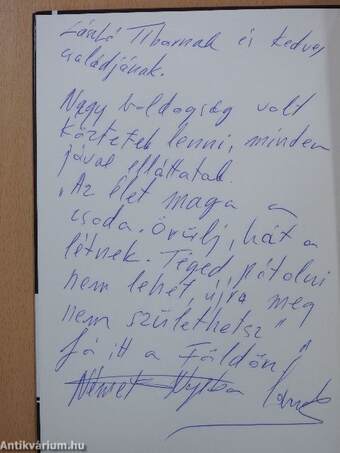 László Tibornak és kedves
családjának.
Nagy boldogság volt
köztetek lenni, minden
jóval elláttatok.
„Az élet maga a
csoda. Örülj, hát a
létnek. Téged, pótolni
nem lehet, újra meg
nem születhetsz"
Jó itt a Földön"
Német
Antikvárium.hu
Antikvárium.hu